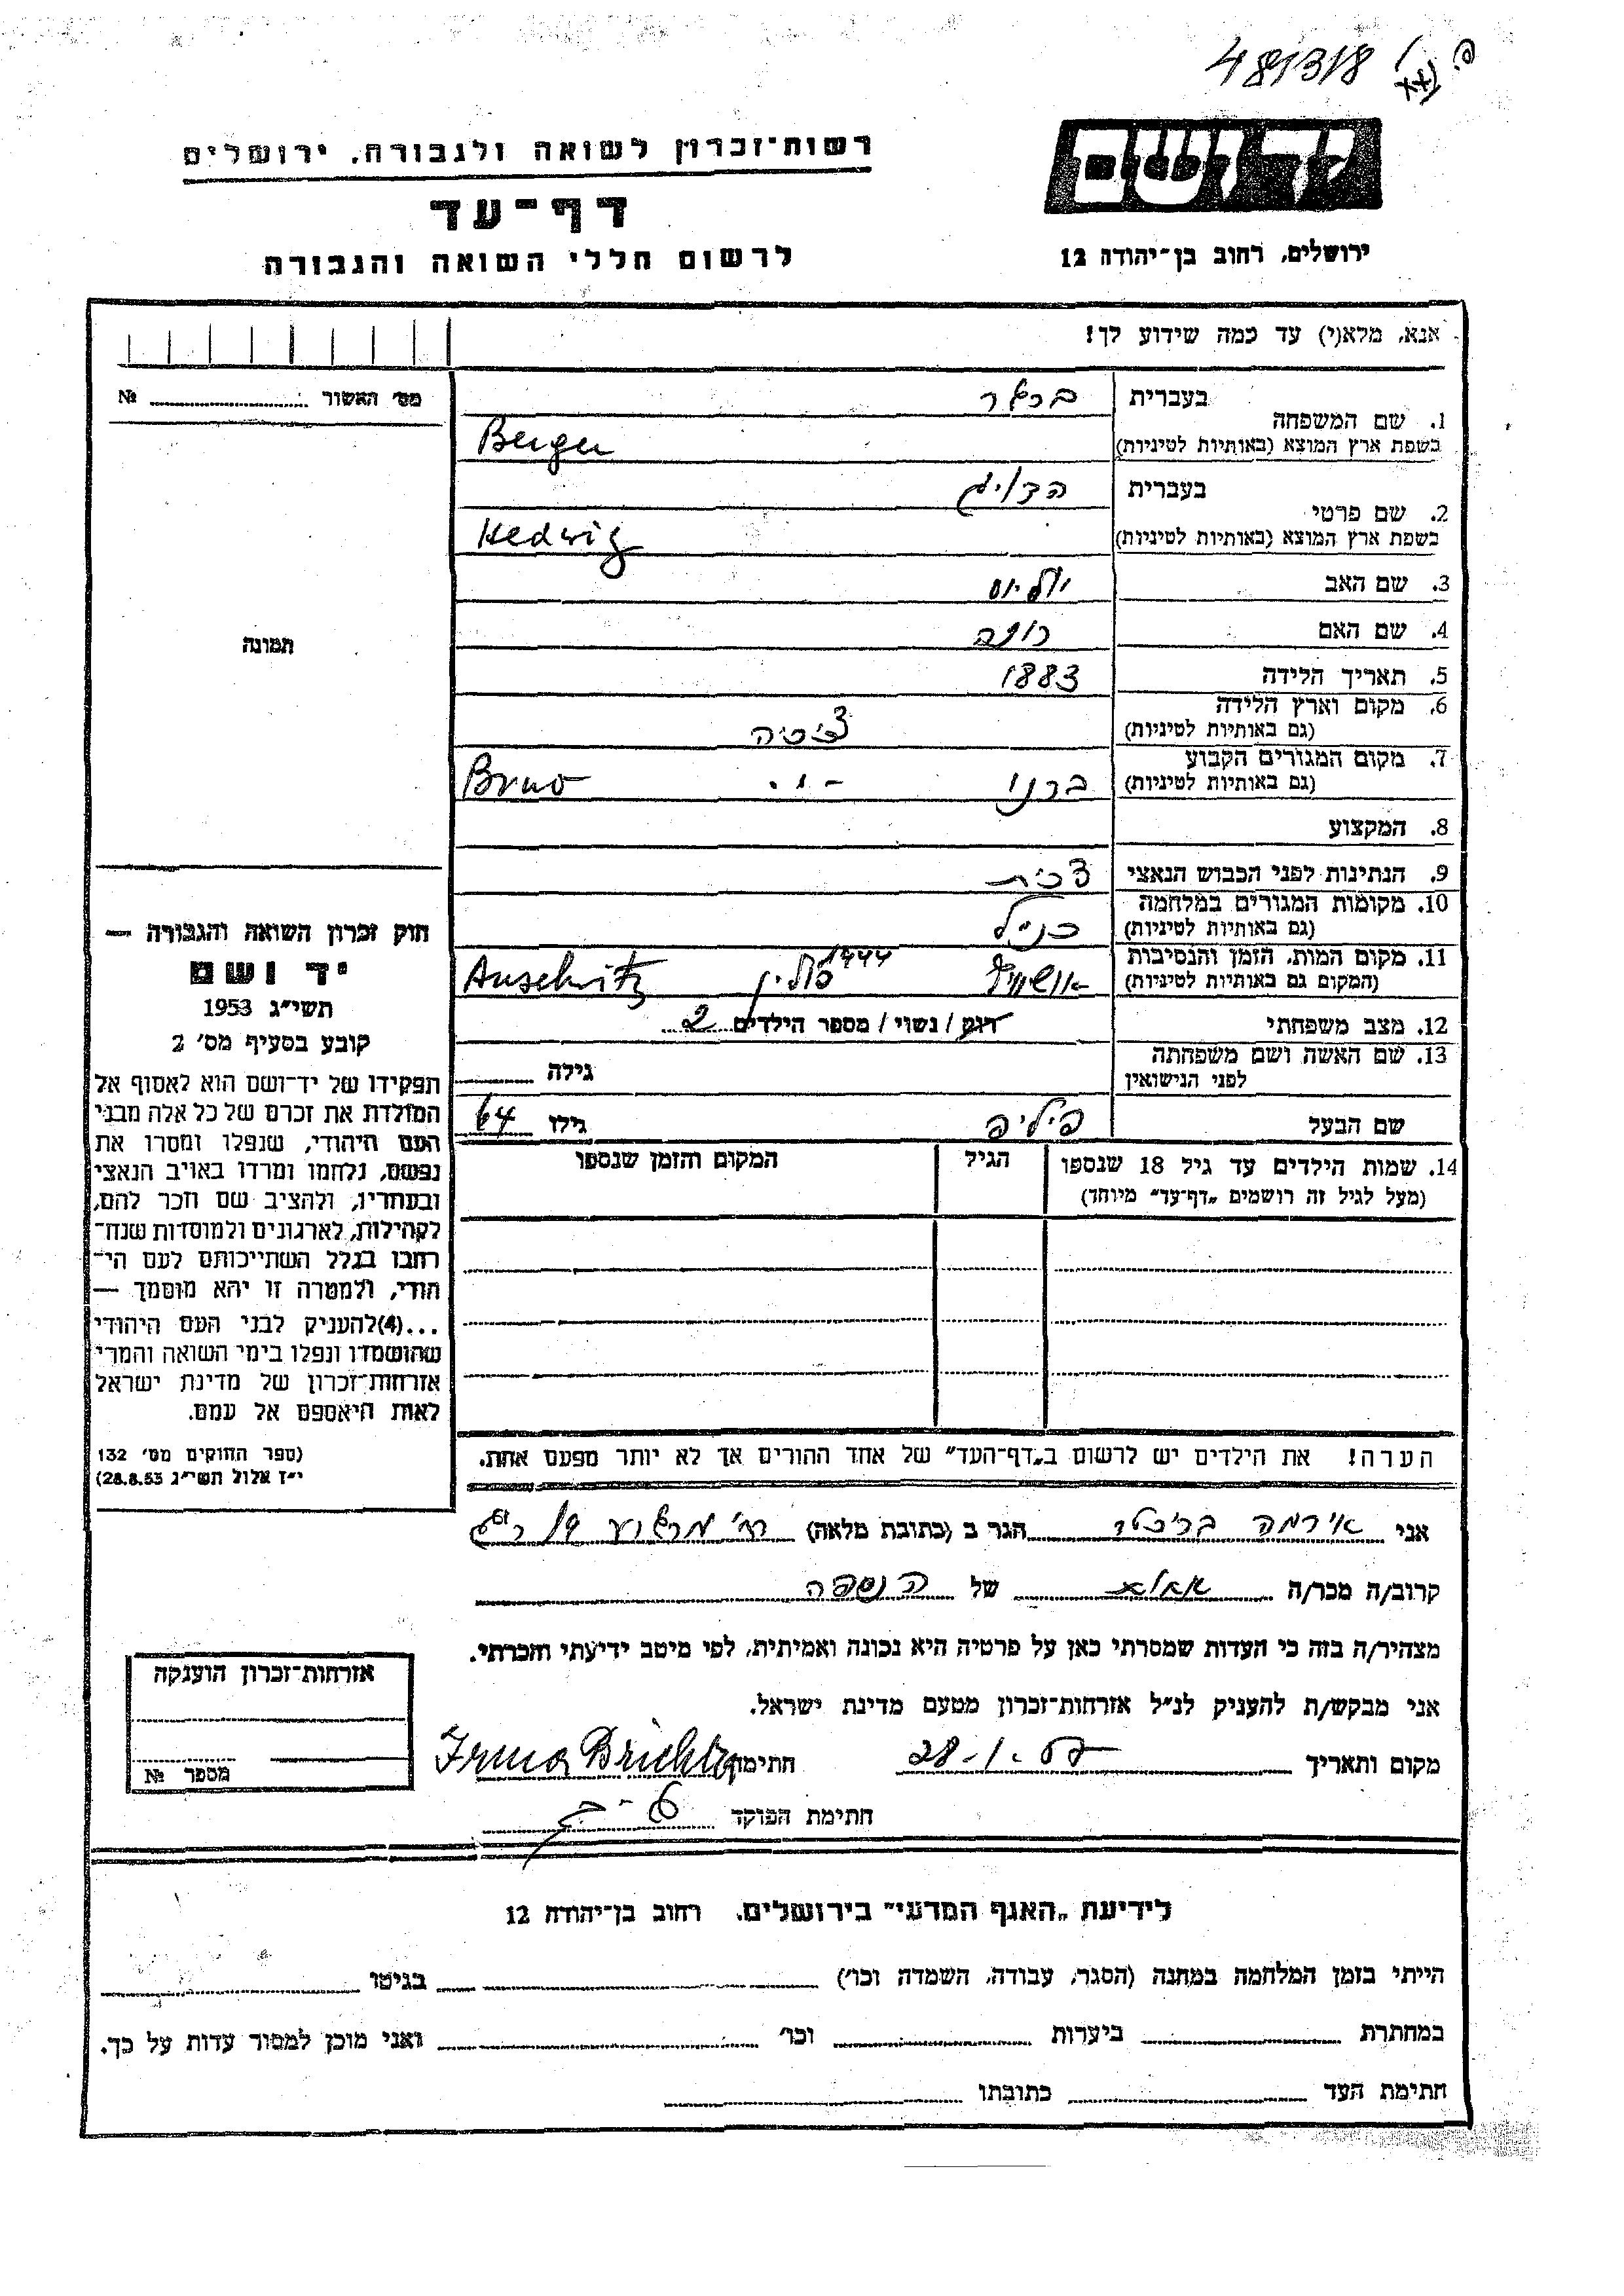 481318
יד ושם
רשות־זכרון לשואה ולגבורה, ירושלים
דף־עד
לרשום חללי השואה והגבורה
ירושלים, רחוב בן־יהודה 12
אנא, מלא(י) עד כמה שידוע לך!
מס׳ האשור № 
1. שם המשפחה
בעברית ברגר
בשפת ארץ המוצא (באותיות לטיניות) Berger
2. שם פרטי
בעברית הדויג
בשפת ארץ המוצא (באותיות לטיניות) Hedwig
3. שם האב יוליוס
4. שם האם
5. תאריך הלידה 1883
6. מקום וארץ הלידה
(גם באותיות לטיניות)
7. מקום המגורים הקבוע
(גם באותיות לטיניות) ברנו - ״ - Brno
8. המקצוע
9. הנתינות לפני הכבוש הנאצי צ׳כית
10. מקומות המגורים במלחמה
(גם באותיות לטיניות) כנ״ל
11. מקום המות, הזמן והנסיבות
(המקום גם באותיות לטיניות) אושוויץ פולין 1944 Auschwitz
12. מצב משפחתי רווק / נשוי / מספר הילדים 2
13. שם האשה ושם משפחתה
לפני הנישואין גילה
שם הבעל פיליפ גילו 64
14. שמות הילדים עד גיל 18 שנספו
(מעל לגיל זה רושמים „דף־עד״ מיוחד)
הגיל
המקום והזמן שנספו
הערה! את הילדים יש לרשום ב„דף־העד״ של אחד ההורים אך לא יותר מפעם אחת.
תמונה
חוק זכרון השואה והגבורה —
יד ושם
תשי״ג 1953
קובע בסעיף מס׳ 2
תפקידו של יד־ושם הוא לאסוף אל
המולדת את זכרם של כל אלה מבני
העם היהודי, שנפלו ומסרו את
נפשם, נלחמו ומרדו באויב הנאצי
ובעוזריו, ולהציב שם וזכר להם,
לקהילות, לארגונים ולמוסדות שנח־
רבו בגלל השתייכותם לעם הי־
הודי, ולמטרה זו יהא מוסמך —
...(4)להעניק לבני העם היהודי
שהושמדו ונפלו בימי השואה והמרי
אזרחות־זכרון של מדינת ישראל
לאות היאספם אל עמם.
(ספר החוקים מס׳ 132
י״ז אלול תשי״ג 28.8.53)
אני אירמה בריכטר הגר ב (כתובת מלאה) 19
קרוב/ה מכר/ה של הנספה
מצהיר/ה בזה כי העדות שמסרתי כאן על פרטיה היא נכונה ואמיתית, לפי מיטב ידיעתי והכרתי.
אני מבקש/ת להעניק לנ״ל אזרחות־זכרון מטעם מדינת ישראל.
מקום ותאריך 28-1-57 חתימה Irma Brichta
חתימת הפוקד
אזרחות־זכרון הוענקה
מספר №
לידיעת „האגף המדעי״ בירושלים, רחוב בן־יהודה 12
הייתי בזמן המלחמה במחנה (הסגר, עבודה, השמדה וכו׳) בגיטו
במחתרת ביערות וכו׳ ואני מוכן למסור עדות על כך.
חתימת העד כתובתו